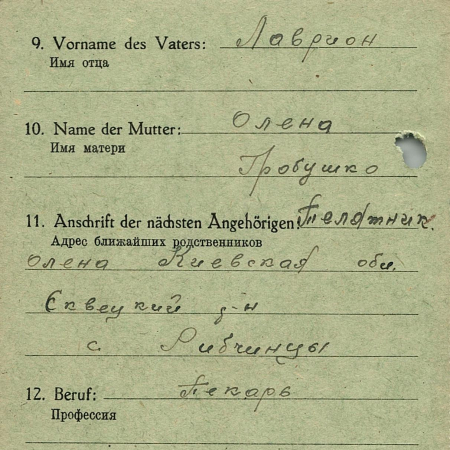 9. Vorname des Vaters: Лаврион
Имя отца
10. Name der Mutter: Олена
Имя матери
Гробушко
11. Anschrift der nächsten Angehörigen: Телятник.
Адрес ближайших родственников
олена Киевская обл.
Сквецкий р-н
с Рибчинцы
12. Beruf: Пекарь
Профессия